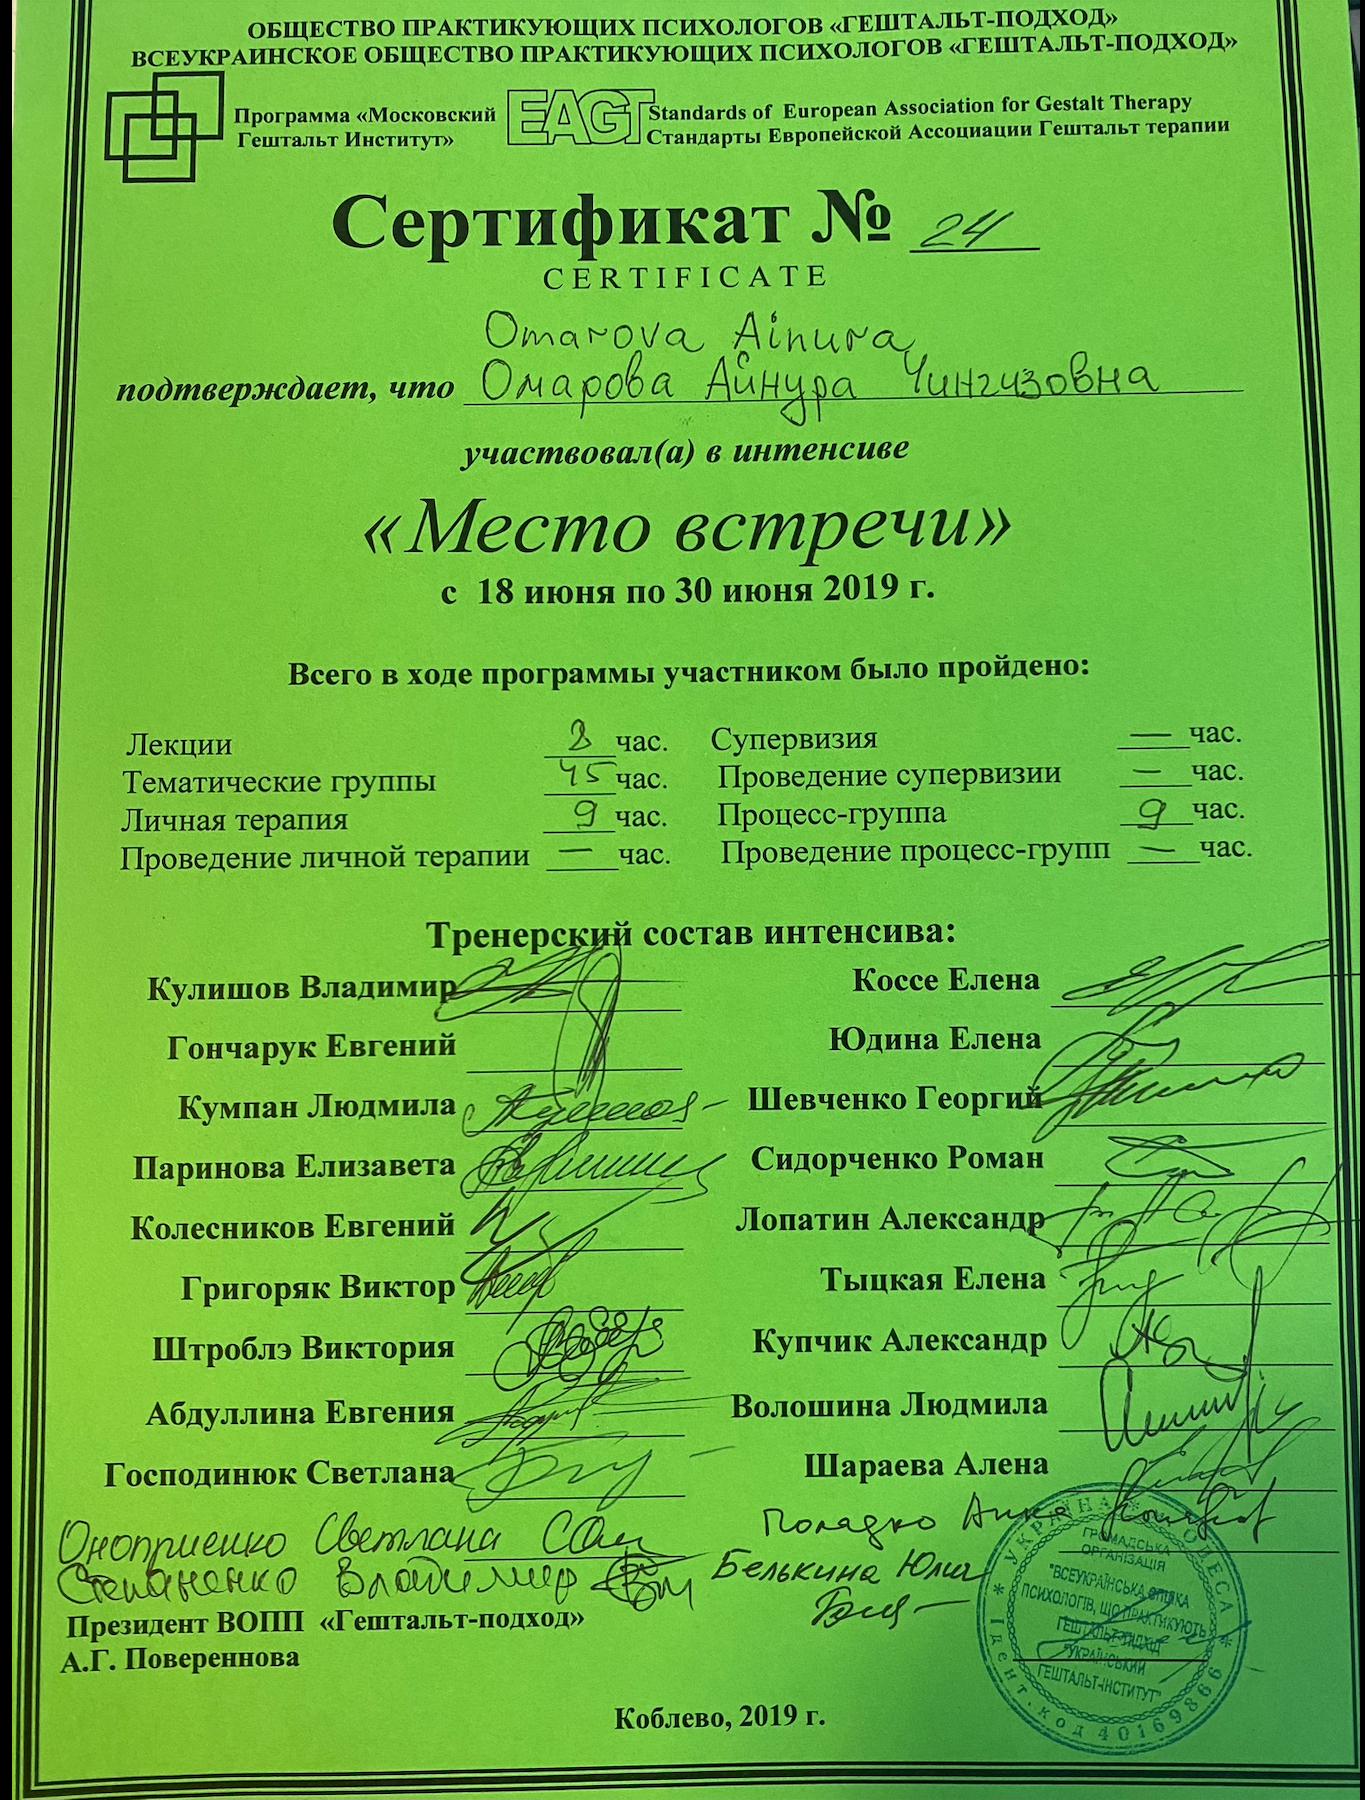 ОБЩЕСТВО ПРАКТИКУЮЩИХ ПСИХОЛОГОВ «ГЕШТАЛЬТ-ПОДХОД»
ВСЕУКРАИНСКОЕ ОБЩЕСТВО ПРАКТИКУЮЩИХ ПСИХОЛОГОВ «ГЕШТАЛЬТ-ПОДХОД»
Программа «Московский Гештальт Институт»
EAGT
Standards of European Association for Gestalt Therapy
Стандарты Европейской Ассоциации Гештальт терапии
Сертификат № 24
CERTIFICATE
Omarova Ainura
подтверждает, что Омарова Айнура Чингизовна
участвовал(а) в интенсиве
«Место встречи»
с 18 июня по 30 июня 2019 г.
Всего в ходе программы участником было пройдено:
Лекции 8 час. Супервизия — час.
Тематические группы 45 час. Проведение супервизии — час.
Личная терапия 9 час. Процесс-группа 9 час.
Проведение личной терапии — час. Проведение процесс-групп — час.
Тренерский состав интенсива:
Кулишов Владимир Коссе Елена
Гончарук Евгений Юдина Елена
Кумпан Людмила Шевченко Георгий
Паринова Елизавета Сидорченко Роман
Колесников Евгений Лопатин Александр
Григоряк Виктор Тыцкая Елена
Штроблэ Виктория Купчик Александр
Абдуллина Евгения Волошина Людмила
Господинюк Светлана Шараева Алена
Оноприенко Светлана
Степаненко Владимир Белькина Юлия
Президент ВОПП «Гештальт-подход»
А.Г. Повереннова
УКРАЇНА * ОДЕСА * Ідент. код 40169866
ГРОМАДСЬКА
ОРГАНІЗАЦІЯ
"ВСЕУКРАЇНСЬКА СПІЛКА
ПСИХОЛОГІВ, ЩО ПРАКТИКУЮТЬ
ГЕШТАЛЬТ-ПІДХІД
"УКРАЇНСЬКИЙ
ГЕШТАЛЬТ-ІНСТИТУТ"
Коблево, 2019 г.